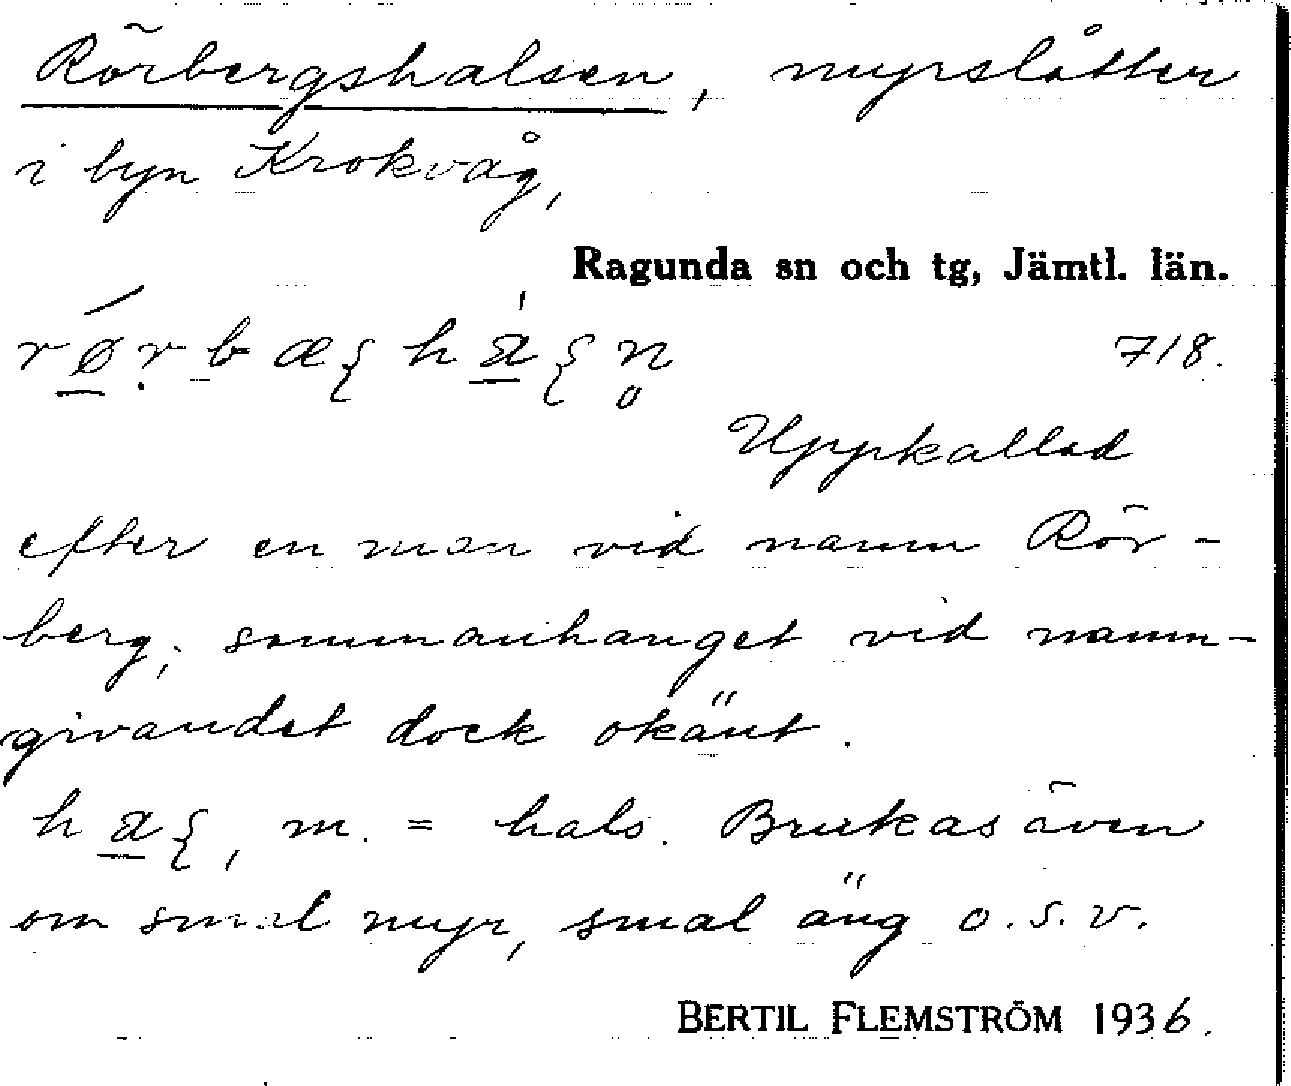 Rörbergshalsen, myrslåtter
i byn Krokvåg,
Ragunda sn och tg, Jämtl. län.
718.
Uppkallad
efter en man vid namn Rör-
berg; sammanhanget vid namn-
givandet dock okänt.
m. = hals. Brukas även
om smal myr, smal äng o.s.v.
BERTIL FLEMSTRÖM 1936.